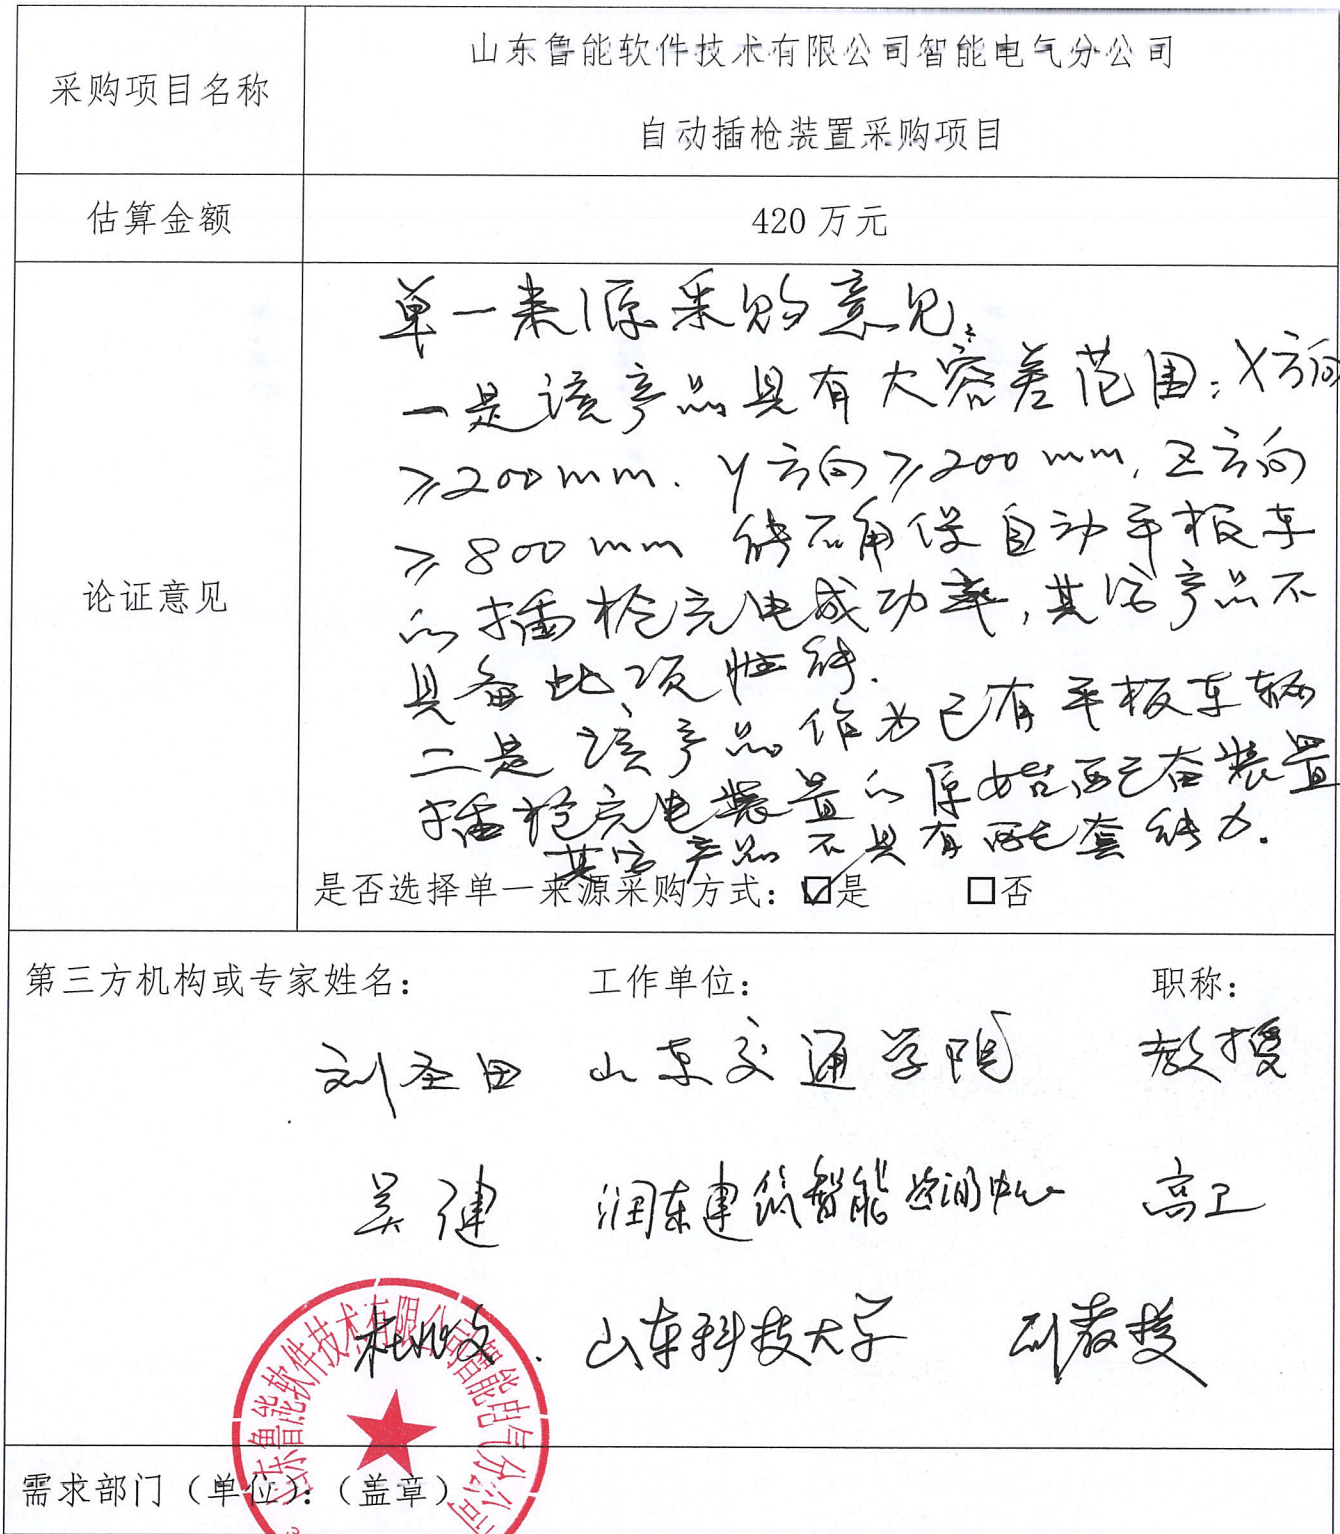 山东鲁能软件技术有限公司智能电气分公司
采购项目名称
自动插枪装置采购项目
估算金额
420 万元
单一来源采购意见:
一是该产品具有大容差范围:X方向
≥200mm. Y方向≥200mm, Z方向
≥800mm 能确保自动平板车
的插枪充电成功率,其它产品不
具备此项性能.
论证意见
二是该产品作为已有平板车辆
插枪充电装置的原始配套装置
其它产品不具有配套能力.
是否选择单一来源采购方式:☑是 □否
第三方机构或专家姓名: 工作单位: 职称:
刘圣田 山东交通学院 教授
吴健 润东建筑智能咨询中心 高工
山东科技大学 副教授
山东鲁能软件技术有限公司智能电气分公司
需求部门(单位):(盖章)